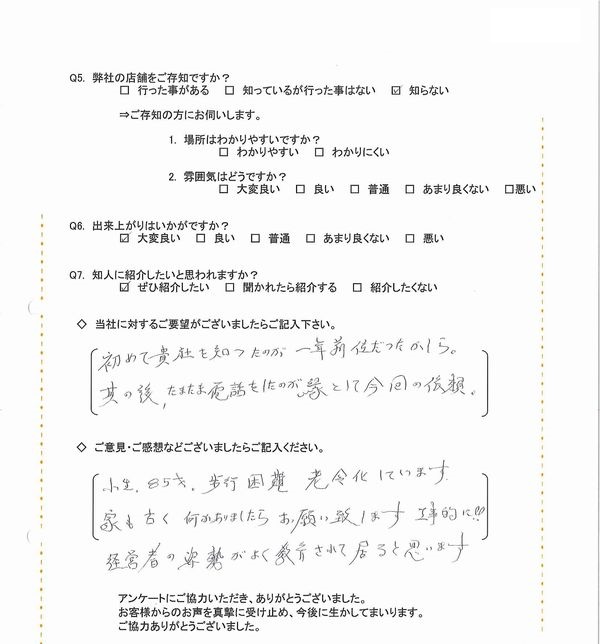 Q5. 弊社の店舗をご存知ですか？
□ 行った事がある □ 知っているが行った事はない ☑ 知らない
⇒ご存知の方にお伺いします。
1. 場所はわかりやすいですか？
□ わかりやすい □ わかりにくい
2. 雰囲気はどうですか？
□ 大変良い □ 良い □ 普通 □ あまり良くない □悪い
Q6. 出来上がりはいかがですか？
☑ 大変良い □ 良い □ 普通 □ あまり良くない □ 悪い
Q7. 知人に紹介したいと思われますか？
☑ ぜひ紹介したい □ 聞かれたら紹介する □ 紹介したくない
◇ 当社に対するご要望がございましたらご記入下さい。
初めて貴社を知ったのが 一年前位だったかしら。
其の後,たまたま電話をしたのが縁として今回の依頼。
◇ ご意見・ご感想などございましたらご記入ください。
小生.85才.歩行困難 老令化しています.
家も古く 何かありましたらお願い致します 工事的に!!!
経営者の姿勢がよく教育されて居ると思います
アンケートにご協力いただき、ありがとうございました。
お客様からのお声を真摯に受け止め、今後に生かしてまいります。
ご協力ありがとうございました。